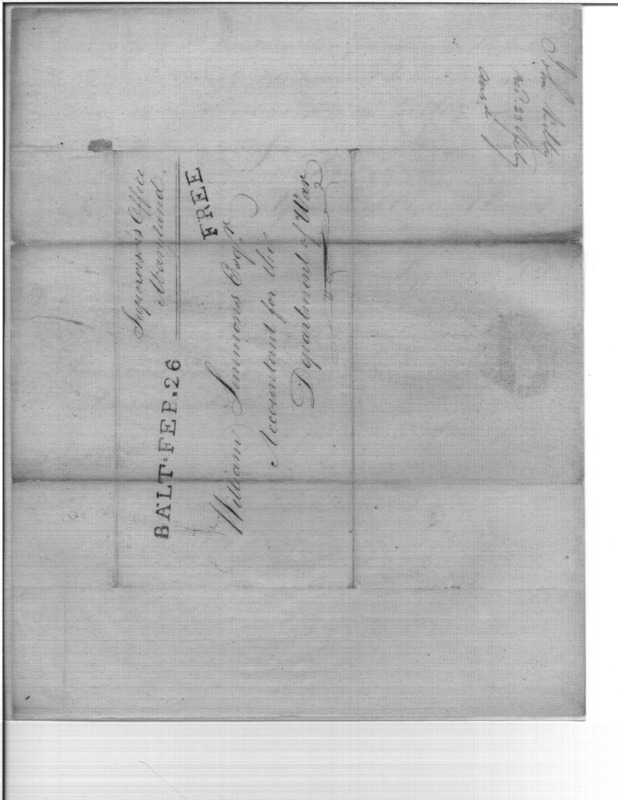 Supervisors Office
Maryland
BALT. FEB. 26
FREE
William Simmons Esqr
Accountant for the
Department of War
John
recd 28 Feby